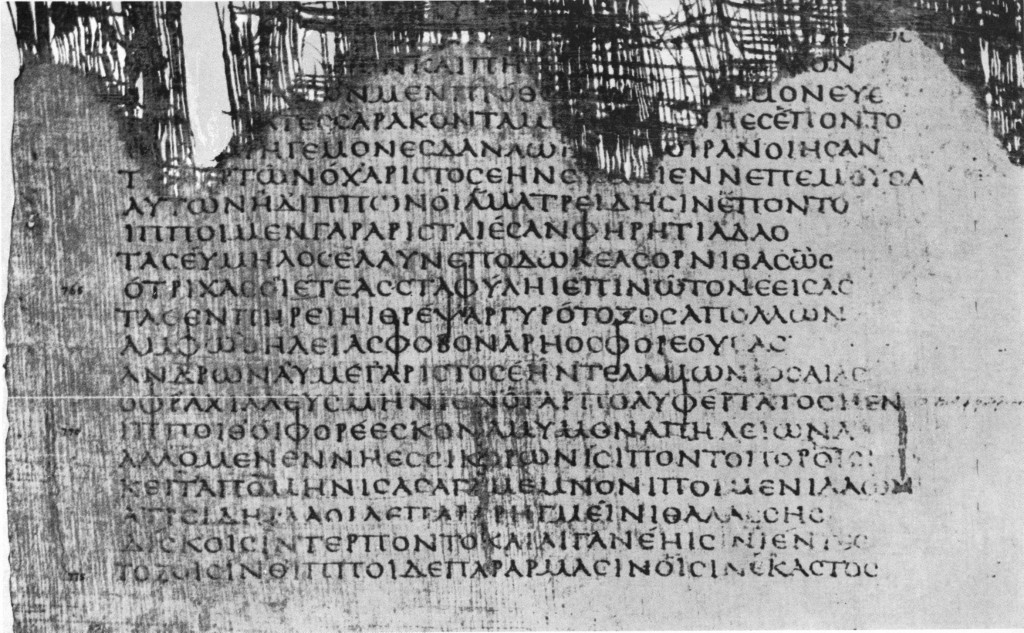 ΟC
ΝΚΑΙΠΗ ΟΝ
ΩΝΜΕΝΠΡΟΘ ΜΟΝΕΥΕ
ΤΕCCΑΡΑΚΟΝΤΑΜ ΗΕCΕΠΟΝΤΟ
ΗΓΕΜΟΝΕCΔΑΝΑΩ ΟΙΡΑΝΟΙΗCΑΝ
Τ ΡΤΩΝΟΧΑΡΙCΤΟCΕΗΝC ΙΕΝΝΕΠΕΜΟΥCΑ
ΑΥΤΩΝΗΔΙΠΠΩΝΟΙΑΜΑΤΡΕΙΔΗCΙΝΕΠΟΝΤΟ
ΙΠΠΟΙΜΕΝΓΑΡΑΡΙCΤΑΙΕCΑΝΦΗΡΗΤΙΑΔΑΟ
ΤΑCΕΥΜΗΛΟCΕΛΑΥΝΕΠΟΔΩΚΕΑCΟΡΝΙΘΑCΩC
ΟΤΡΙΧΑCΟΙΕΤΕΑCCΤΑΦΥΛΗΙΕΠΙΝΩΤΟΝΕΕΙCΑC
ΤΑCΕΝΠΗΡΕΙΗΙΘΡΕΨΑΡΓΥΡΟΤΟΞΟCΑΠΟΛΛΩΝ
ΑΜΦΩΘΗΛΕΙΑCΦΟΒΟΝΑΡΗΟCΦΟΡΕΟΥCΑC
ΑΝΔΡΩΝΑΥΜΕΓΑΡΙCΤΟCΕΗΝΤΕΛΑΜΩΝΙΟCΑΙΑC
ΟΦΡΑΧΙΛΛΕΥCΜΗΝΙΕΝΟΓΑΡΠΟΛΥΦΕΡΤΑΤΟCΗΕΝ
ΙΠΠΟΙΘΟΙΦΟΡΕΕCΚΟΝΑΜΥΜΟΝΑΠΗΛΕΙΩΝΑ
ΑΛΛΟΜΕΝΕΝΝΗΕCCΙΚΟΡΩΝΙCΙΠΟΝΤΟΠΟΡΟΙCΙ
ΚΕΙΤΑΠΟΜΗΝΙCΑCΑΓΑΜΕΜΝΟΝΙΠΟΙΜΕΝΙΛΑΩΝ
ΑΤΡΕΙΔΗΙΛΑΟΙΔΕΠΑΡΑΡΗΓΜΕΙΝΙΘΑΛΑCCΗC
ΔΙCΚΟΙCΙΝΤΕΡΠΟΝΤΟΚΑΙΑΙΓΑΝΕΗΙCΙΝΙΕΝΤΕC
ΤΟΞΟΙCΙΝΘΙΠΠΟΙΔΕΠΑΡΑΡΜΑCΙΝΟΙCΙΝΕΚΑCΤΟC